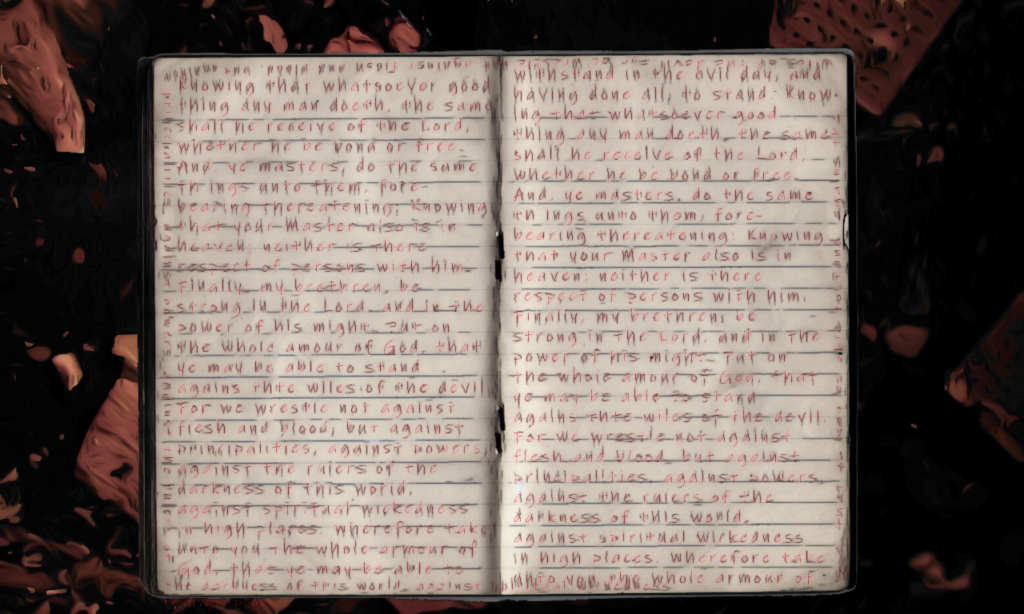 Knowing that whatsoever good
thing any man doeth, the same
shall he receive of the Lord,
whether he be bond or free.
And, ye masters, do the same
things unto them, fore-
bearing thereatening; Knowing
that your Master also is in
heaven; neither is there
respect of persons with him.
Finally, my brethren, be
strong in the Lord, and in the
power of his might. Put on
the whole amour of God, that
ye may be able to stand
agains thte wiles of the devil.
For we wrestle not against
flesh and blood, but against
principalities, against powers,
against the rulers of the
darkness of this world,
against spiritual wickedness
in high places. Wherefore take
unto you the whole armour of
God, that ye may be able to
he darkness of this world, against
withstand in the evil day, and
having done all, to stand. Know-
ing that whatsoever good
thing any man doeth, the same
shall he receive of the Lord,
whether he be bond or free.
And, ye masters, do the same
things unto them, fore-
bearing thereatening: Knowing
that your Master also is in
heaven; neither is there
respect of persons with him.
Finally, my brethren, be
strong in the Lord, and in the
power of his might. Put on
the whole amour of God, that
ye may be able to stand
agains thte wiles of the devil.
For we wrestle not against
flesh and blood, but against
principalities, against powers,
against the rulers of the
darkness of this world,
against spiritual wickedness
in high places. Wherefore take
unto you the whole armour of